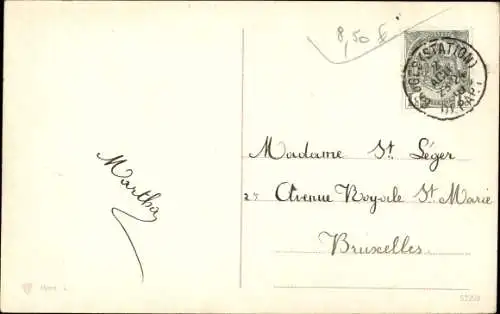 8,50 F
BRUGES (STATION)
DEPART
Madame St. Léger
Martha
27 Avenue Royale St. Marie
Bruxelles